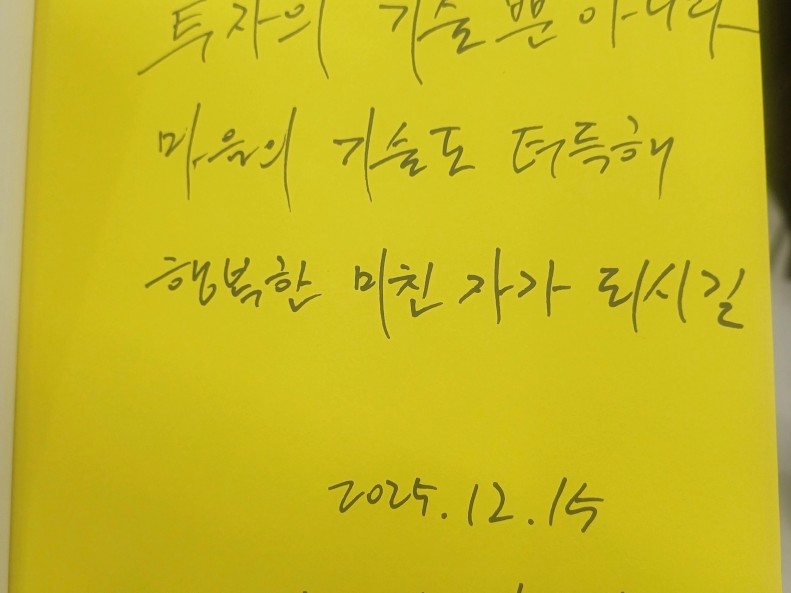 투자의 기술뿐 아니라
마음의 기술도 터득해
행복한 미친 자가 되시길
2025.12.15